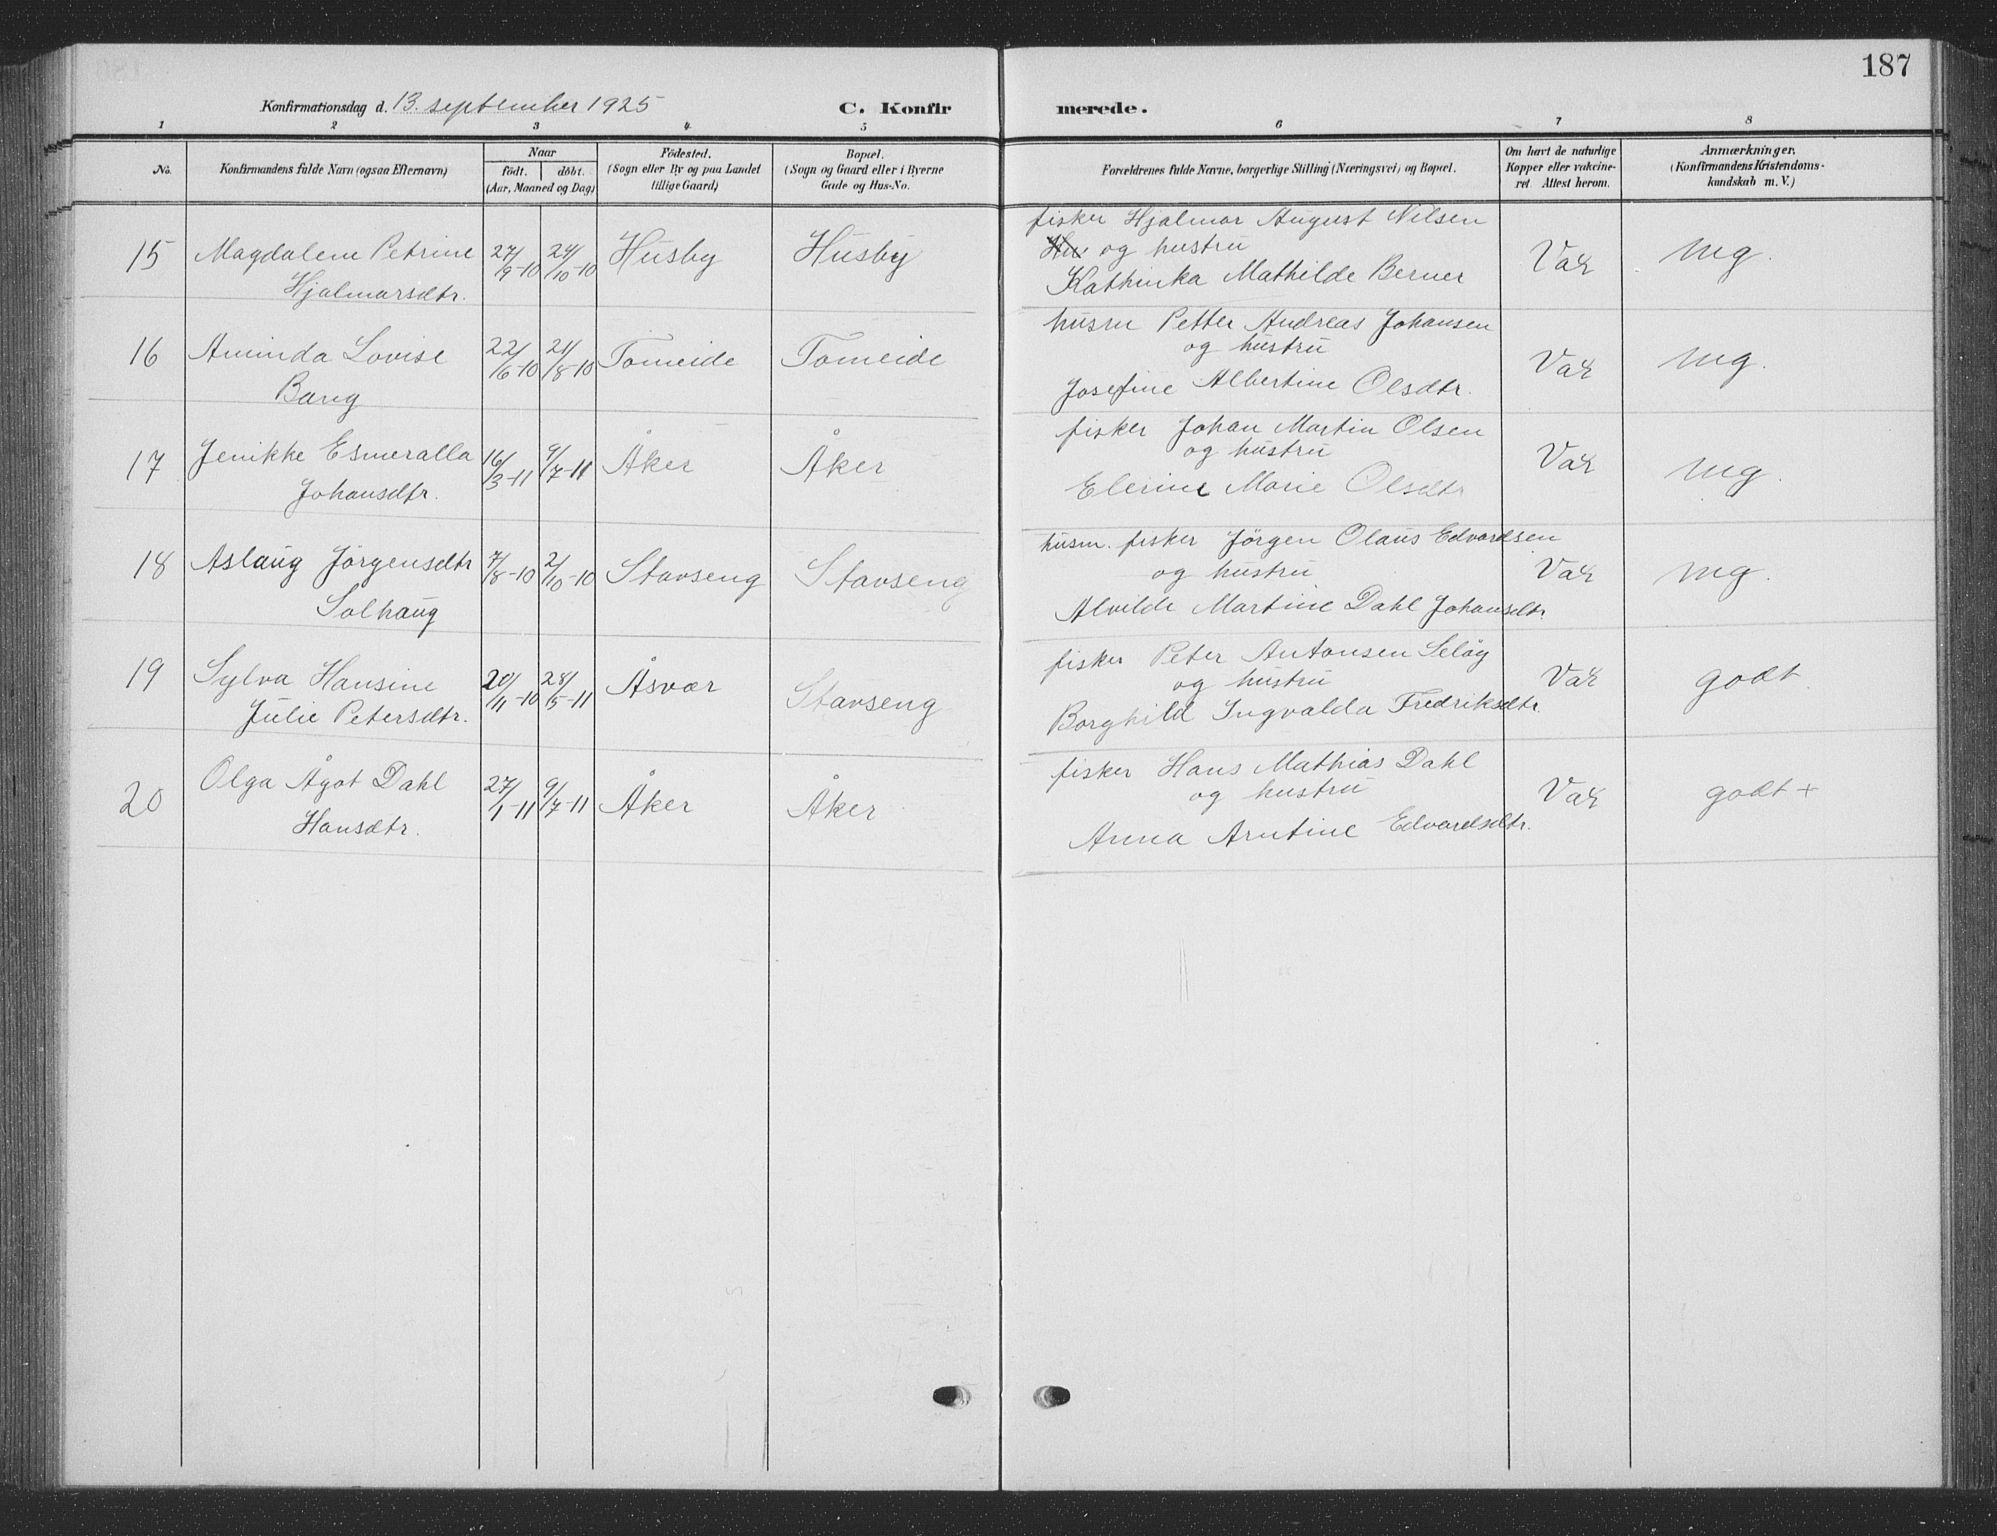 187
Konfirmationsdag d. 13. september 1925 C. Konfirmerede.
1 2 3 4 5 6 7 8
No. Konfirmandens fulde Navn (ogsaa Efternavn) Naar født. døbt. (Aar, Maaned og Dag) Fødested. (Sogn eller By og paa Landet tillige Gaard) Bopæl. (Sogn og Gaard eller i Byerne Gade og Hus-No. Forældrenes fulde Navne, borgerlige Stilling (Næringsvei) og Bopæl. Om havt de naturlige Kopper eller vakcineret. Attest herom. Anmærkninger. (Konfirmandens Kristendomskundskab m. V.)
fisker Hjalmar August Nilsen
15 Magdalene Petrine 27/9-10 24/10-10 Husby Husby og hustru Vac mg.
Hjalmarsdtr. Kathinka Mathilde Berner
husm Petter Andreas Johansen
16 Aminda Lovise 22/6-10 21/8-10 Tomeide Tomeide og hustru Vac mg.
Bang Josefine Albertine Olsdtr.
fisker Johan Martin Olsen
17 Jenikke Esmeralla 16/3-11 9/7-11 Åker Åker og hustru Vac mg.
Johansdtr. Elerine Marie Olsdtr
husm. fisker Jørgen Olaus Edvardsen
18 Aslaug Jørgensdtr 7/8-10 2/10-10 Stavseng Stavseng og hustru Vac mg.
Solhaug Alvilde Martine Dahl Johansdtr.
fisker Peter Antonsen Seløy
19 Sylva Hansine 20/11-10 28/5-11 Åsvær Stavseng og hustru Vac godt.
Julie Petersdtr. Borghild Ingvalda Fredriksdtr.
fisker Hans Mathias Dahl
20 Olga Ågot Dahl 27/1-11 9/7-11 Åker Åker og hustru Vac godt +
Hansdtr. Anna Arntine Edvardsdtr.